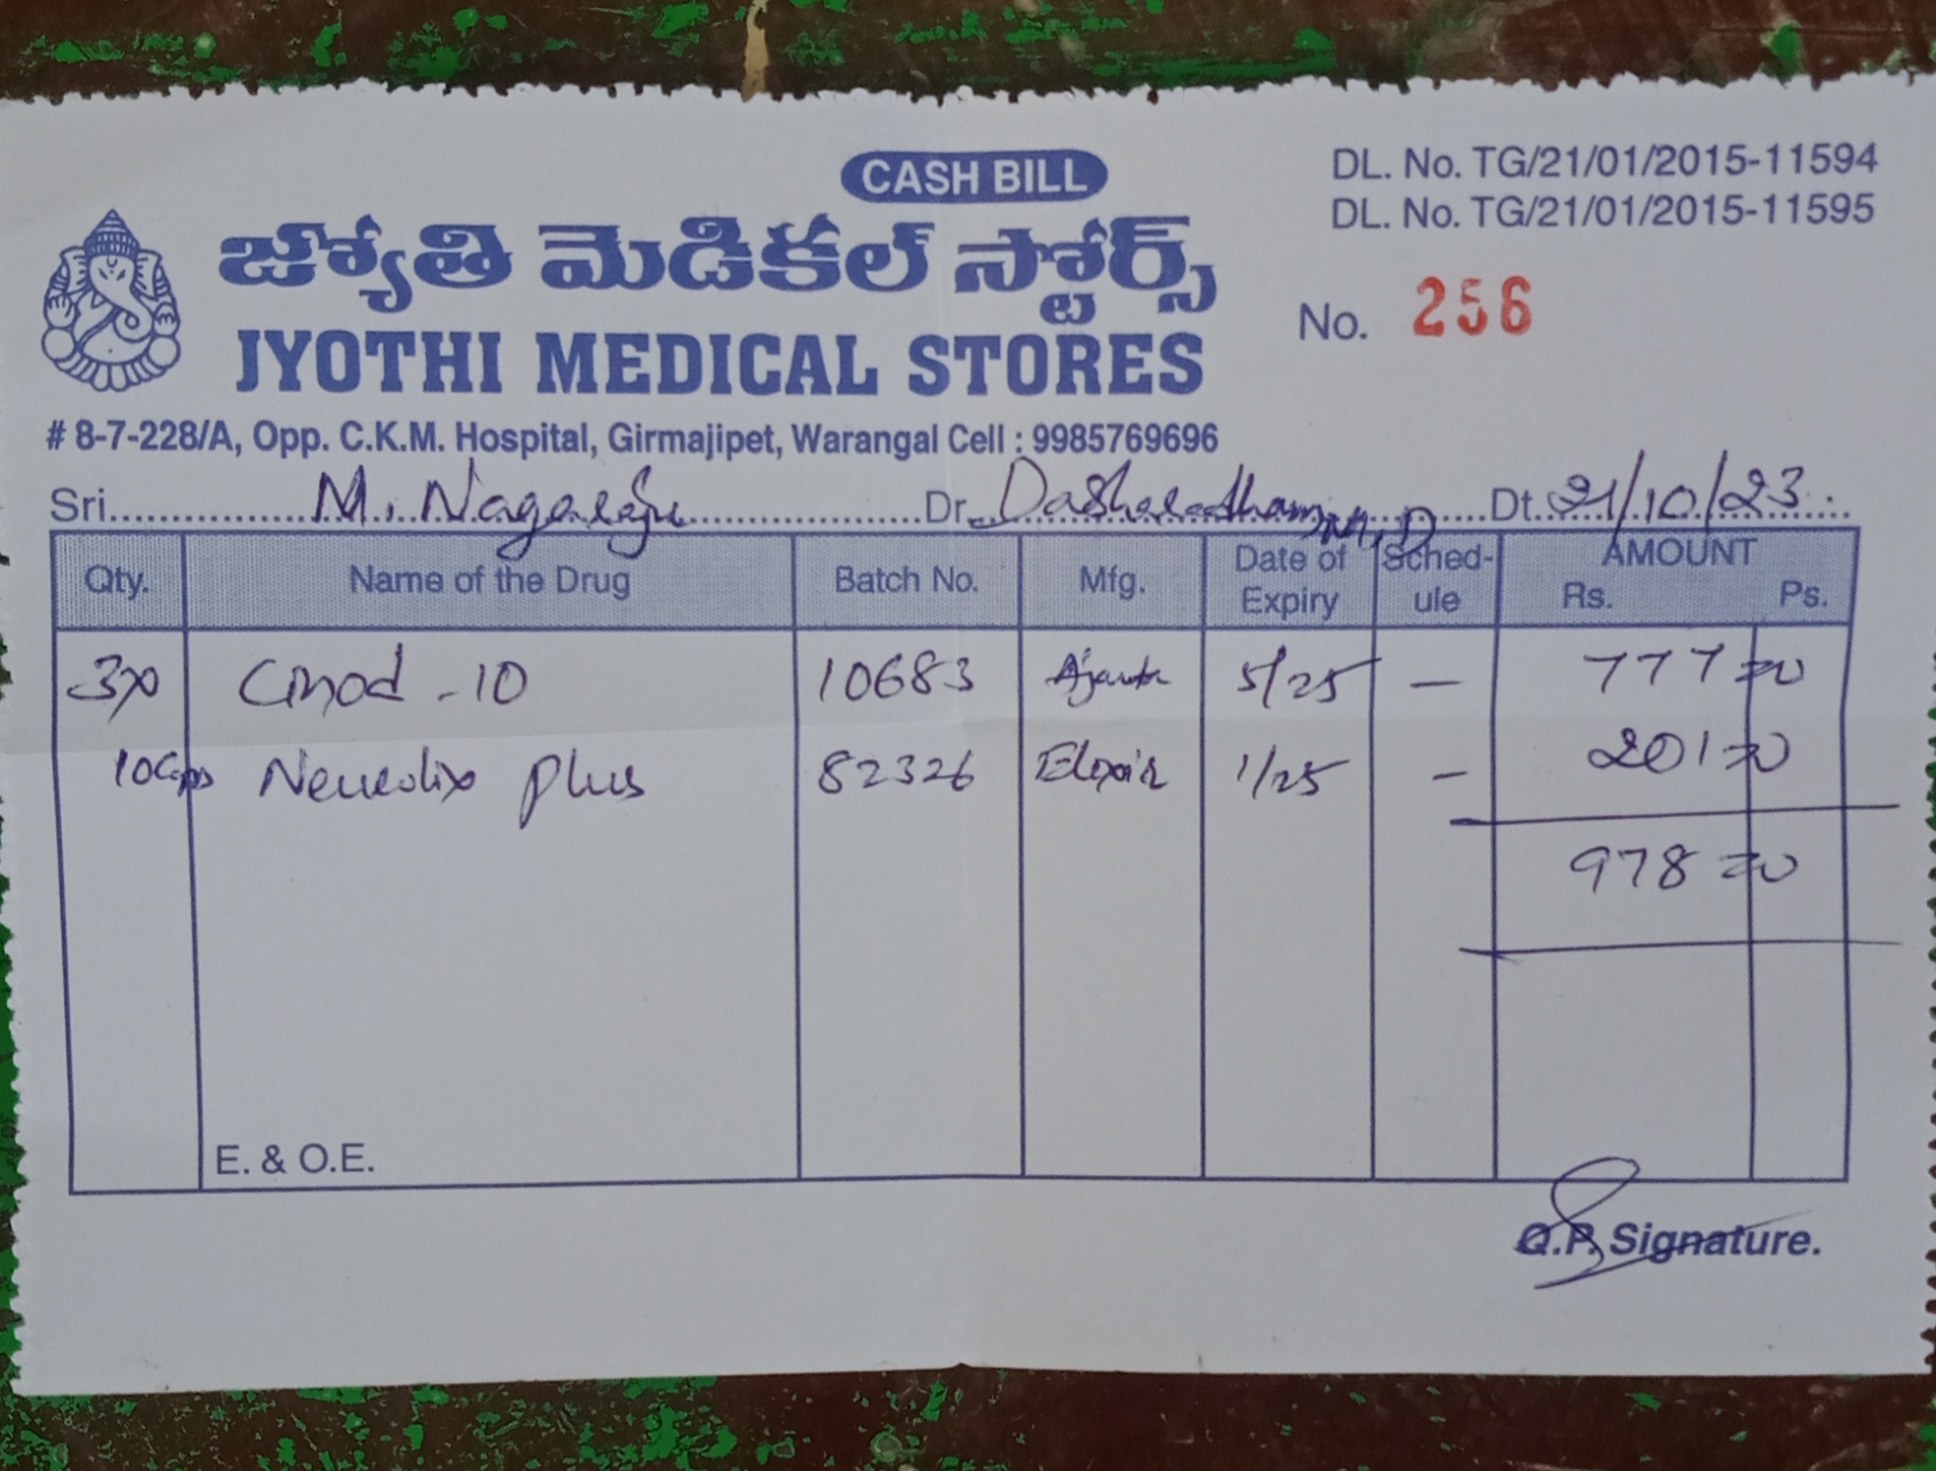 CASH BILL
DL. No. TG/21/01/2015-11594
DL. No. TG/21/01/2015-11595
జ్యోతి మెడికల్ స్టోర్స్
No. 256
JYOTHI MEDICAL STORES
# 8-7-228/A, Opp. C.K.M. Hospital, Girmajipet, Warangal Cell : 9985769696
Sri. M. Nagaraju Dr. Dasharadham M.D Dt. 21/10/23
Qty. Name of the Drug Batch No. Mfg. Date of Expiry Sched-ule AMOUNT Rs. Ps.
Cinod - 10 10683 Ajanta 5/25 — 777=00
10Caps plus 82326 Elixir 1/25 — 201=00
978=00
E. & O.E.
Q.P. Signature.